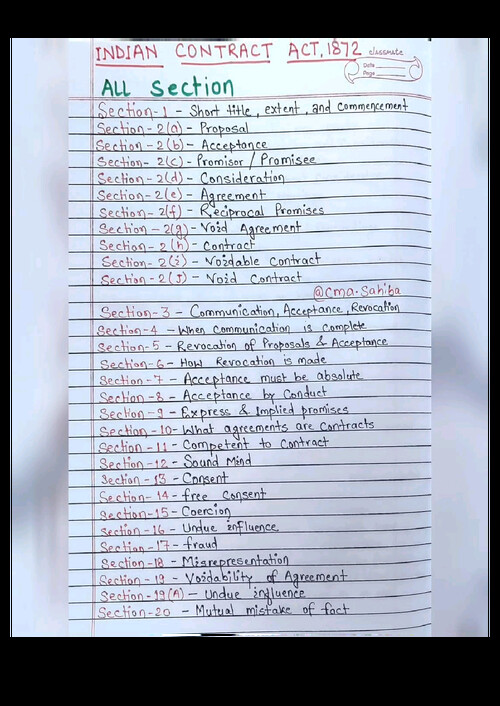 INDIAN CONTRACT ACT, 1872
classmate
Date
Page
ALL Section
Section-1 - Short title, extent, and commencement
Section-2(a) - Proposal
Section-2(b) - Acceptance
Section-2(c) - Promisor / Promisee
Section-2(d) - Consideration
Section-2(e) - Agreement
Section-2(f) - Reciprocal Promises
Section-2(g) - Void Agreement
Section-2(h) - Contract
Section-2(i) - Voidable Contract
Section-2(J) - Void Contract
@cma.sahiba
Section-3 - Communication, Acceptance, Revocation
Section-4 - When communication is complete
Section-5 - Revocation of Proposals & Acceptance
Section-6 - How Revocation is made
Section-7 - Acceptance must be absolute
Section-8 - Acceptance by Conduct
Section-9 - Express & Implied promises
Section-10- What agreements are Contracts
Section-11- Competent to Contract
Section-12- Sound Mind
Section-13 - Consent
Section-14 - free Consent
Section-15 - Coercion
Section-16 - Undue influence
Section-17 - fraud
Section-18 - Misrepresentation
Section-19 - Voidability of Agreement
Section-19(A) - Undue influence
Section-20 - Mutual mistake of fact